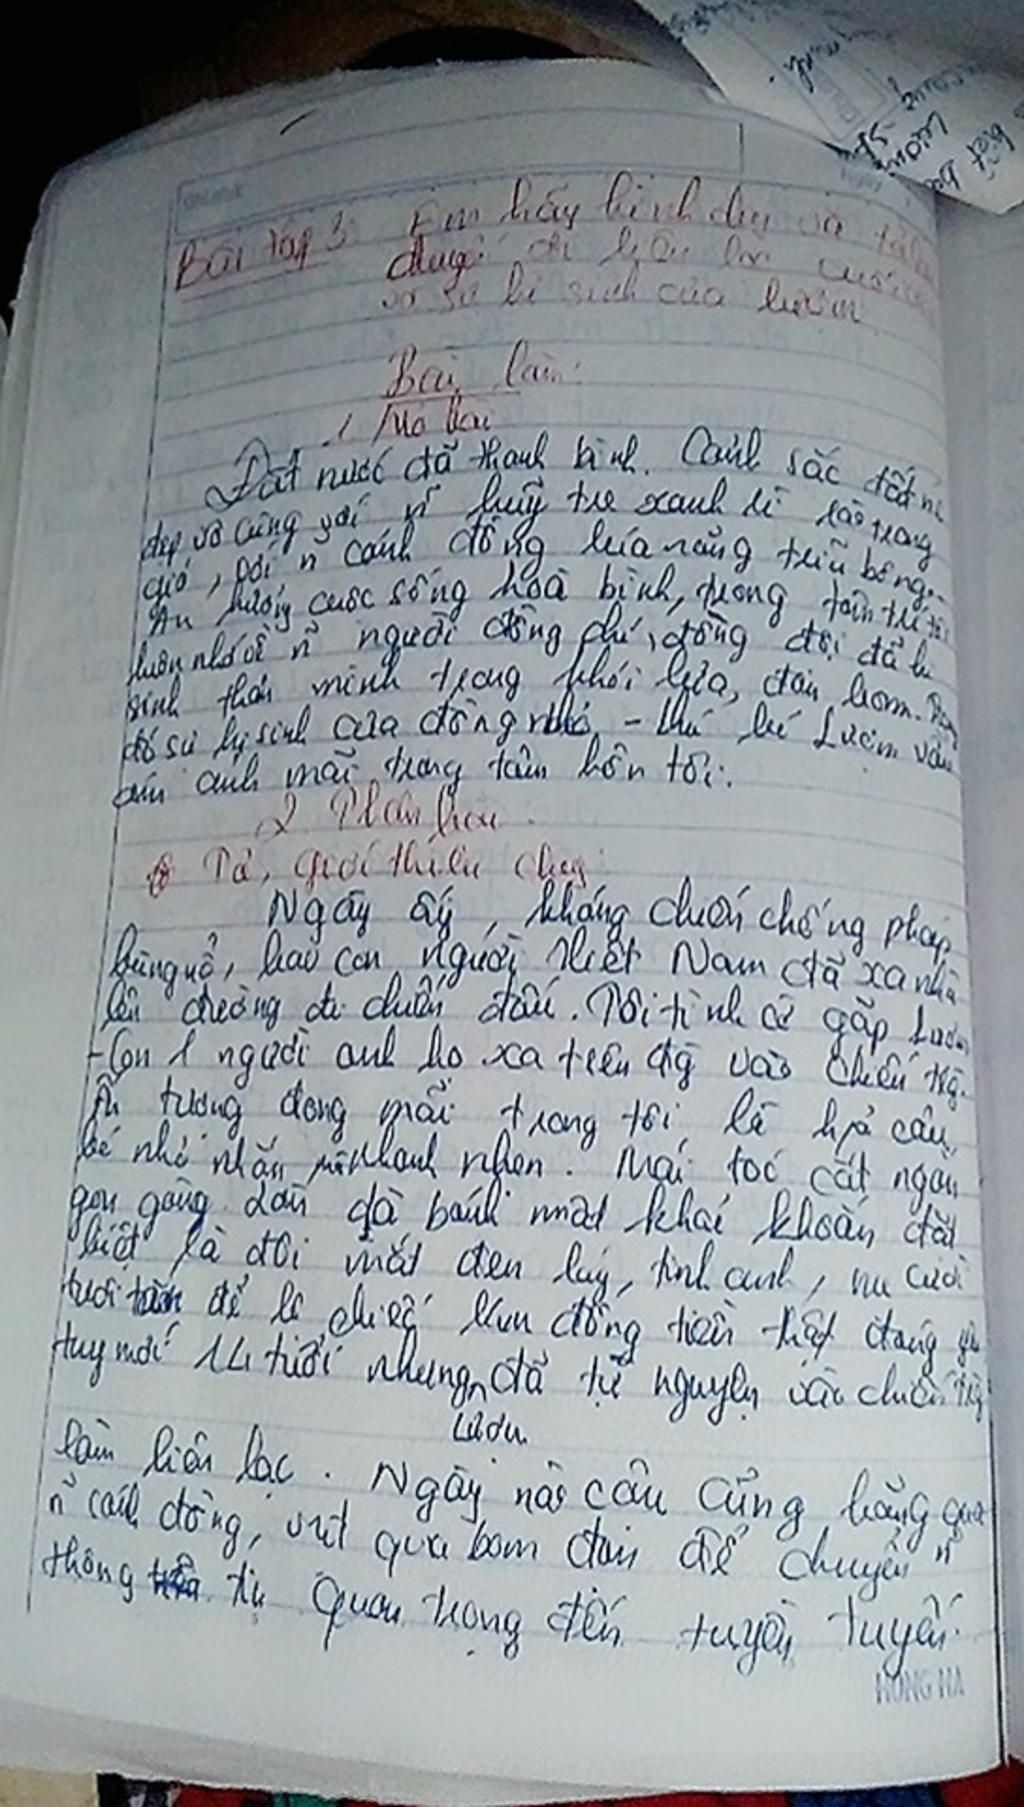 Bài tập 3: Em hãy hình dung và tả lại
chuyến đi liên lạc cuối cùng
và sự hi sinh của lượm
Bài làm:
1 Mở bài
Đất nước đã thanh bình. Cảnh sắc đất nc
đẹp vô cùng với n~ luỹ tre xanh rì rào trong
gió, với n~ cánh đồng lúa nặng trĩu bông..
An hưởng cuộc sống hoà bình, trong tâm trí tôi
luôn nhớ về n~ người đồng chí, đồng đội đã hi
sinh thân mình trong khói lửa, đạn bom.
đó sự hy sinh của đồng chí - chú bé Lượm vẫn
ám ảnh mãi trong tâm hồn tôi.
2 Thân bài
Tả, giới thiệu chung:
Ngày ấy, kháng chiến chống pháp
bùng nổ, bao con người Việt Nam đã xa nhà
lên đường đi chiến đấu. Tôi tình cờ gặp Lượm
- Con 1 người anh họ xa trên đg vào chiến trg.
Ấn tượng đọng mãi trong tôi là h/ả cậu
bé nhỏ nhắn nhanh nhẹn. Mái tóc cắt ngắn
gọn gàng. Làn da bánh mật khoẻ khoắn đặc
biệt là đôi mắt đen láy, tinh anh, nụ cười
tươi để lộ chiếc lúm đồng tiền thật đáng yêu
tuy mới 14 tuổi nhưng Lượm đã tự nguyện vào chiến trg
làm liên lạc. Ngày nào cậu cũng băng qua
n~ cánh đồng, vượt qua bom đạn để chuyển n~
thông tin quan trọng đến tuyền tuyến.
HONG HA